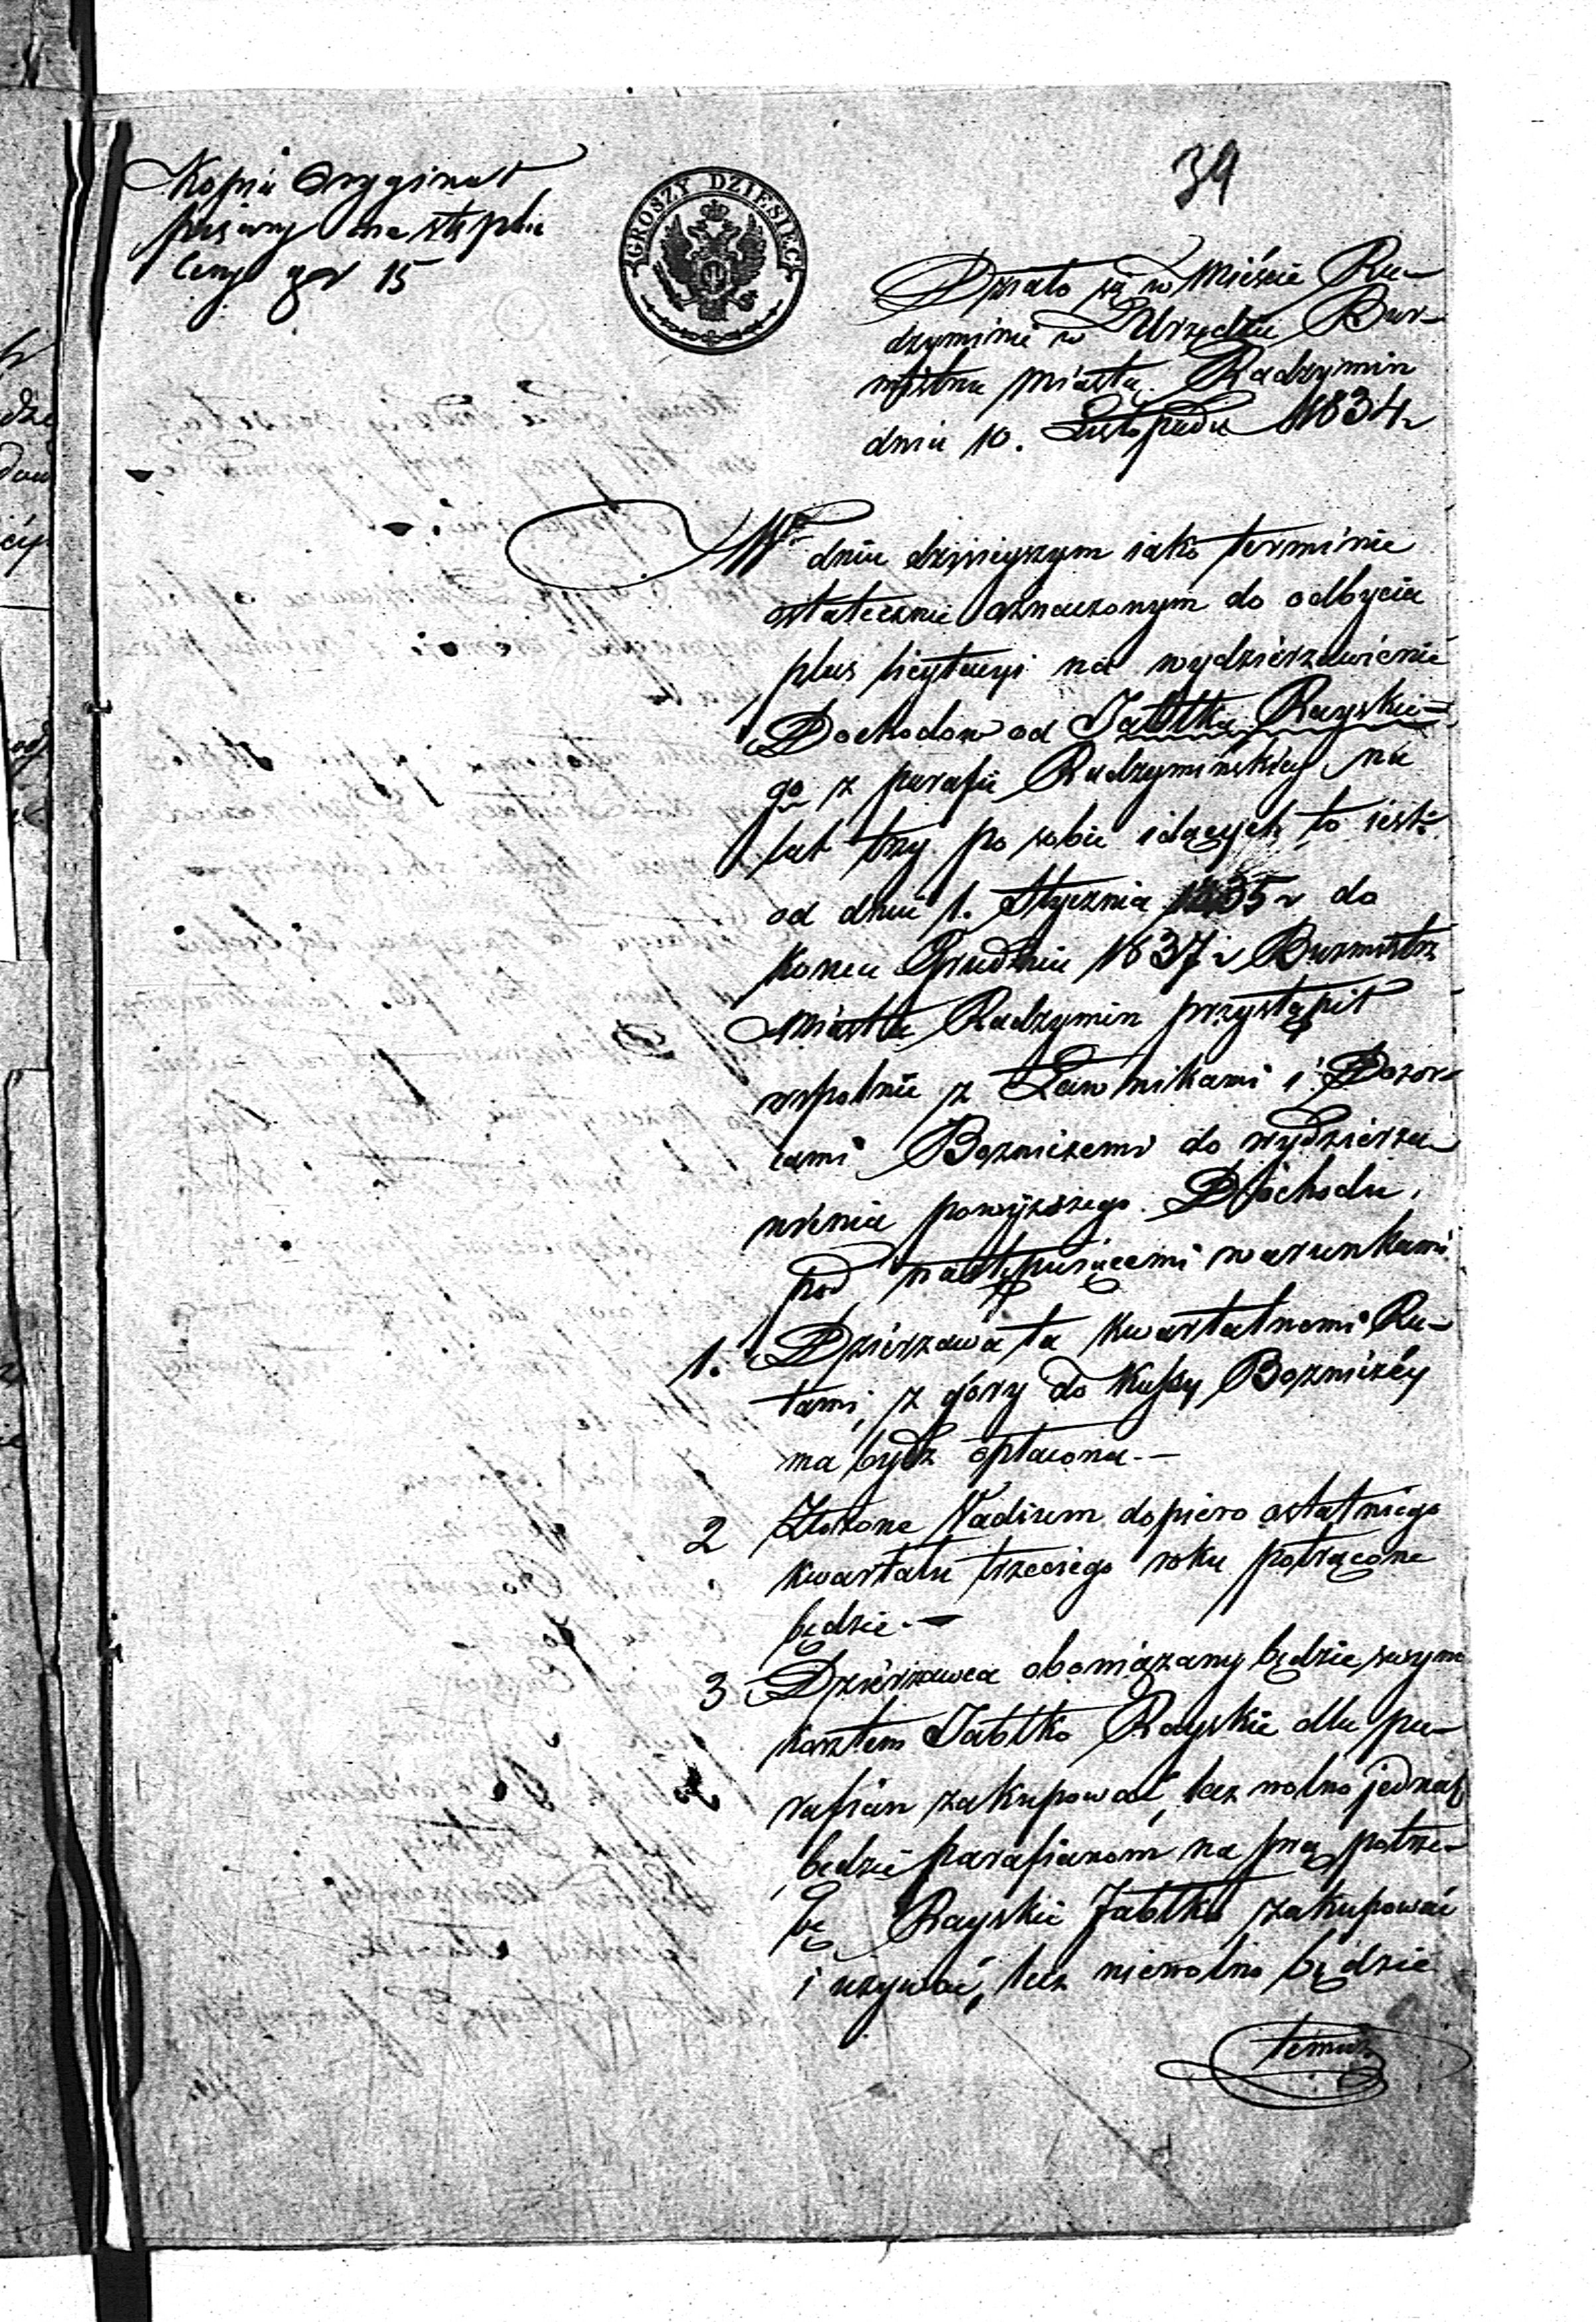 Kopia Oryginał
pisany na stęplu
Ceny gr 15
GROSZY DZIESIĘĆ
39
Działo się w Mieście Ra-
dzyminie w Urzędzie Bur-
mistrza Miasta Radzymin
dnia 10. Listopada 1834 r
W dniu dzisieyszym iako terminie
ostatecznie oznaczonym do odbycia
plus licytacyi na wydzierzawienie
Dochodow od Jabłka Rayskie-
go z parafii Radzyminskiey na
lat trzy po sobie idących to iest:
od dnia 1. Stycznia 1835 r do
konca Grudnia 1837 r Burmistrz
Miasta Radzymin przystąpił
wspolnie z Ławnikami i Dozor-
cami Bozniczemi do wydzierza-
wienia powyższego Dochodu,
pod następuiącemi warunkami
1. Dzierzawa ta kwartalnemi Ra-
tami z góry do Kassy Bozniczéy
ma bydź opłacona.—
2 Złożone Vadium dopiero ostatniego
kwartału trzeciego roku potrącone
będzie.—
3 Dzierzawca obowiązany będzie swym
kosztem Jabłko Rayskie dla pa-
rafian zakupować, lecz wolno jednak
będzie parafianom na swą potrze-
bę Rayskie Jabłko zakupować
i uzywać, lecz niewolno będzie
temuż